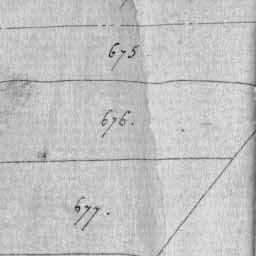 675
676.
677.